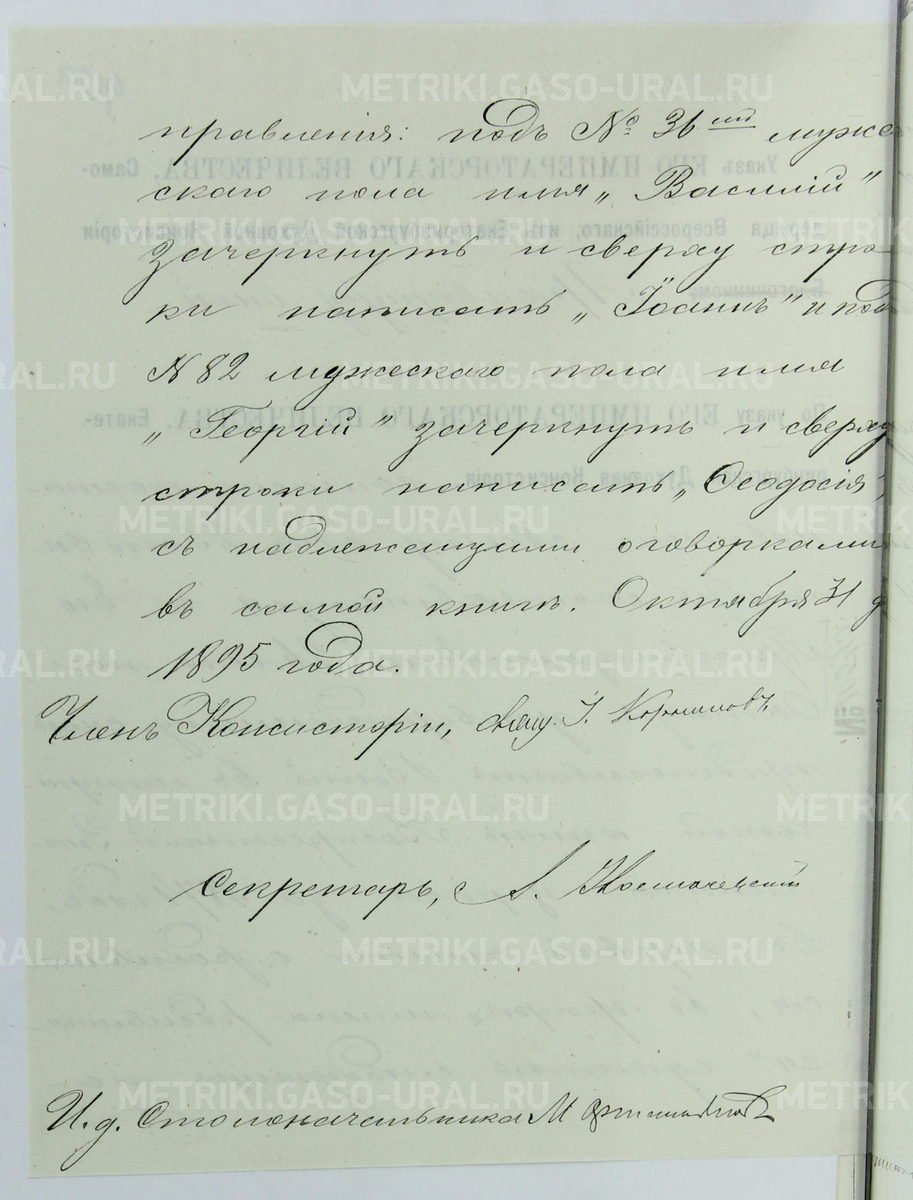 правленія: подъ № 36ый муже
скаго пола имя „Василій“
зачеркнуть и сверху стро-
ки написать „Іоаннъ“ и под
N 82 мужескаго пола имя
„Георгій“ зачеркнуть и сверху
строки написать „Феодосія“,
съ надлежащими оговорками
въ самой книгѣ. Октября 31 д
1895 года.
Членъ Консисторіи, Свящ. І.
Секретарь, А.
И. д. Столоначальника М
METRIKI.GASO-URAL.RU